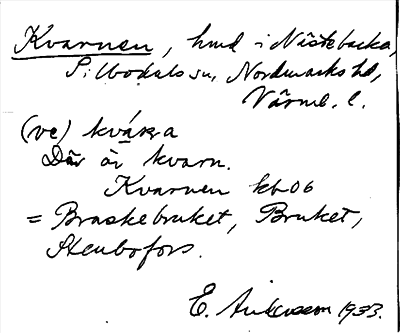 Kvarnen, hmd i Nästebacka,
Sillbodals sn, Nordmarks hd,
Värml. l.
(ve) kvárna
Där är kvarn.
Kvarnen kb 06
= Braskebruket, Bruket,
Stenbofors.
E. 1933.